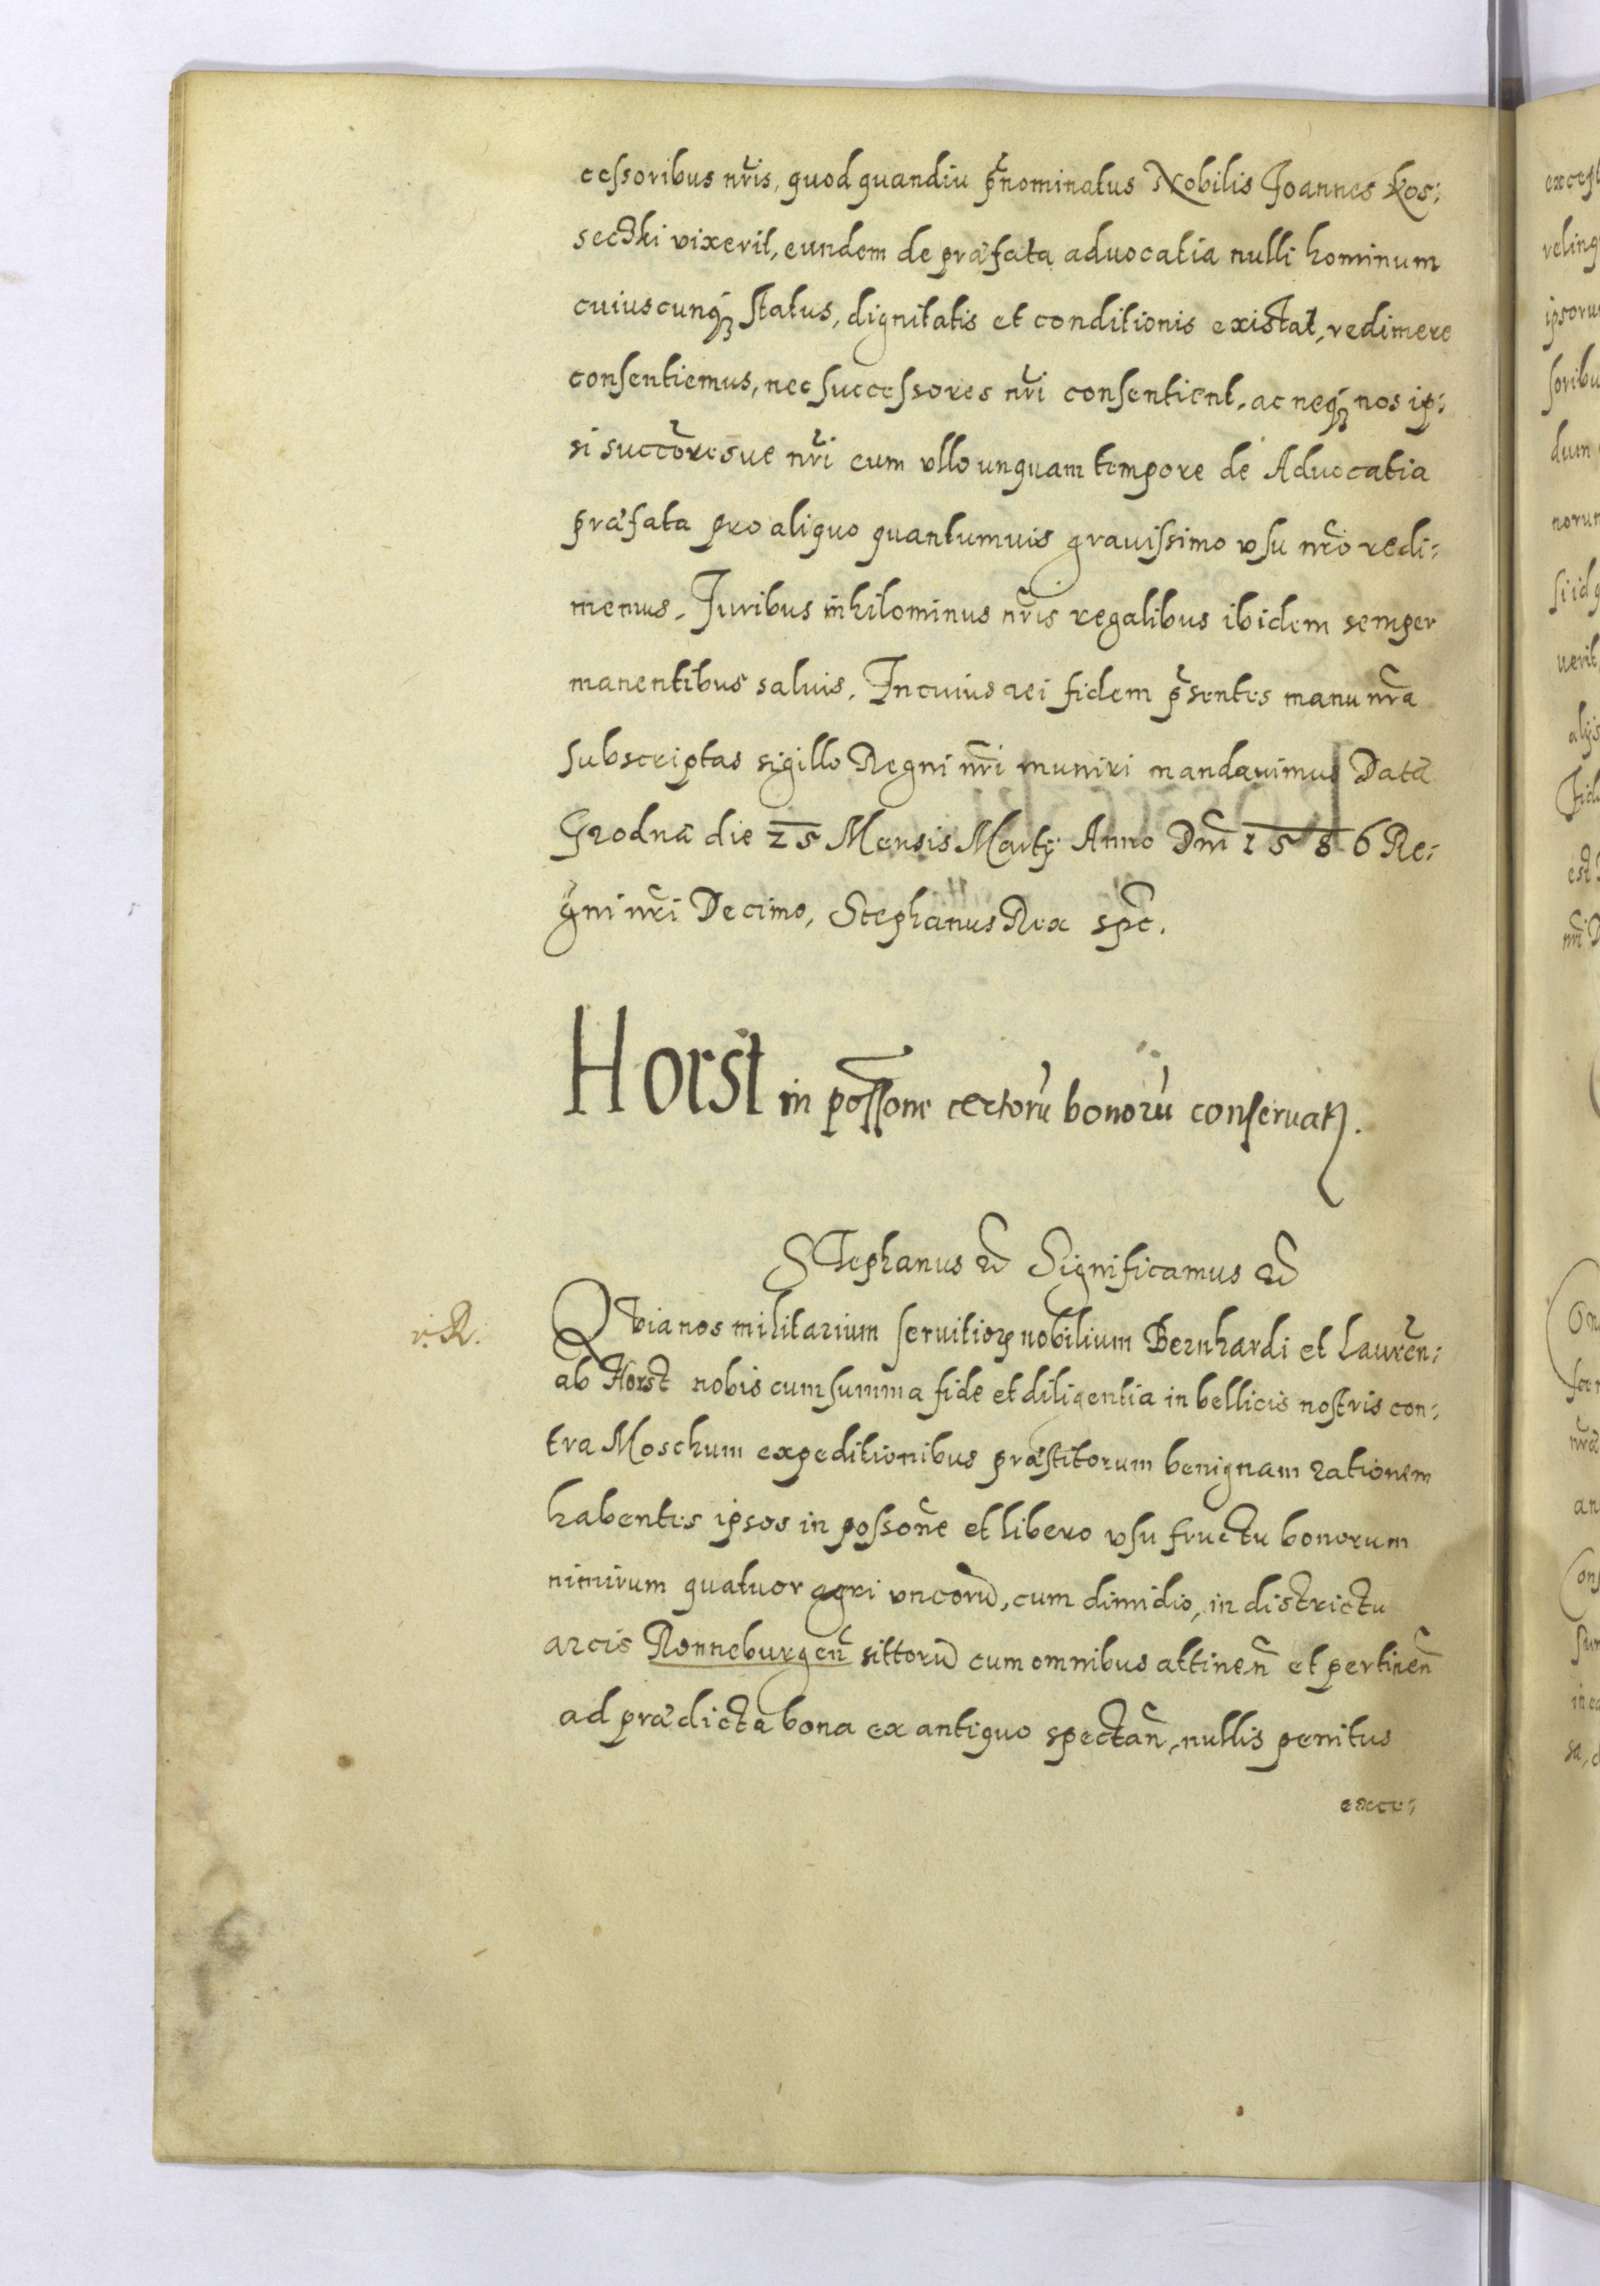 cessoribus nr̃is, quod quandiu p̃nominatus Nobilis Joannes Kos:
secƷki vixerit, eundem de præfata aduocatia nulli hominum
cuiuscunq; status, dignitatis et conditionis existat, redimere
consentiemus, nec successores nr̃i consentient, ac neq; nos ip:
si succc̃oresue nr̃i eum vllo unquam tempore de Aduocatia
præfata pro aliquo quantumuis grauissimo vsu nr̃o redi:
memus. Juribus nihilominus nr̃is regalibus ibidem semper
manentibus saluis. In cuius rei fidem p̃sentes manu nr̃a
subscriptas sigillo Regni nr̃i muniri mandauimus Datã
Grodnæ die 25 Mensis Martij Anno Dnĩ 1586 Re:
gni nr̃i Decimo, Stephanus Rex spt̃.
Horst in possone certorũ bonorũ conseruatꝫ.
Stephanus etc̃ Significamus etc̃
v. R.
Quia nos militarium seruitioꝝ nobilium Bernhardi et Laurẽn:
ab Horst nobis cum summa fide et diligentia in bellicis nostris con:
tra Moschum expeditionibus præstitorum benignam rationem
habentes ipsos in possoñe et libero vsu fructu bonorum
nimirum quatuor agri vncorũ, cum dimidio, in districtu
arcis Ronneburgeñ sittorũ cum omnibus attineñ et pertineñ
ad prædicta bona ex antiquo spectañ, nullis penitus
exce: